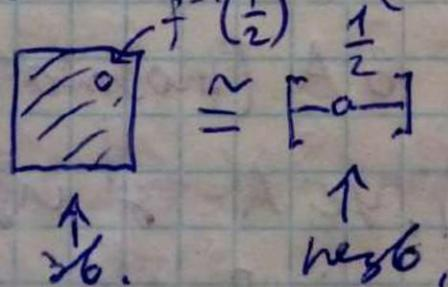 f⁻¹(1/2)
≅ [—o—] 1/2
зв. незв.